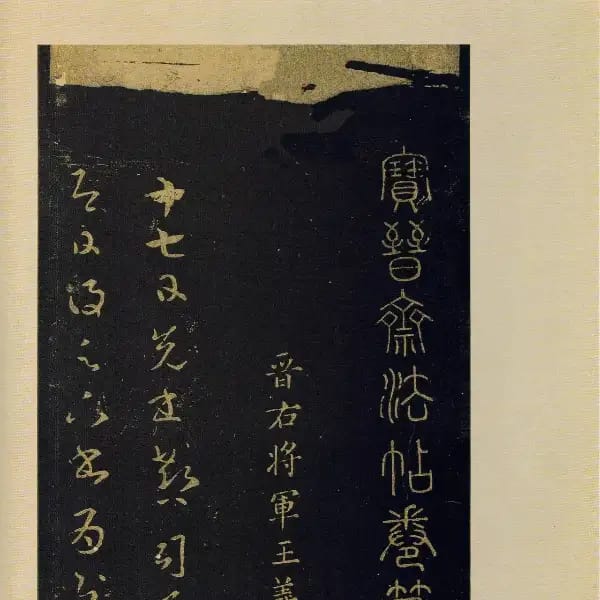 寶晉齋法帖卷第
晉右將軍王羲
十七日先書郗司
即日得足下書為